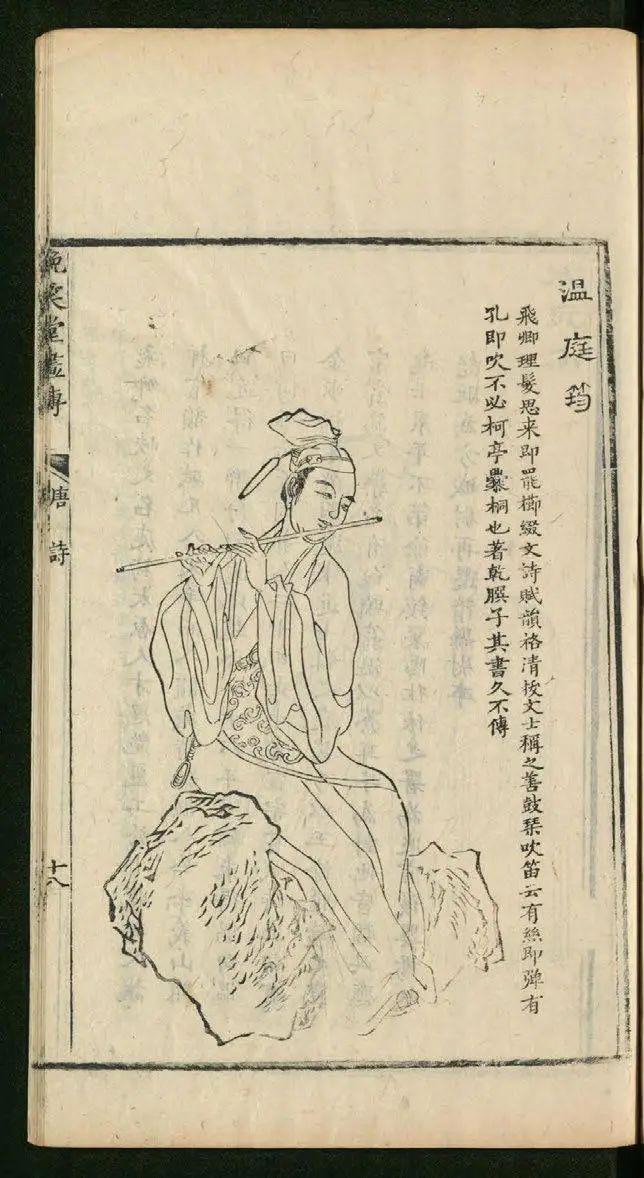 温庭筠
飛卿理髮思来即罷櫛綴文詩賦韻格清拔文士稱之善鼓琴吹笛云有絲即彈有
孔即吹不必柯亭爨桐也著乾𦠆子其書久不傳
晩笑堂畫傳
唐詩
十八